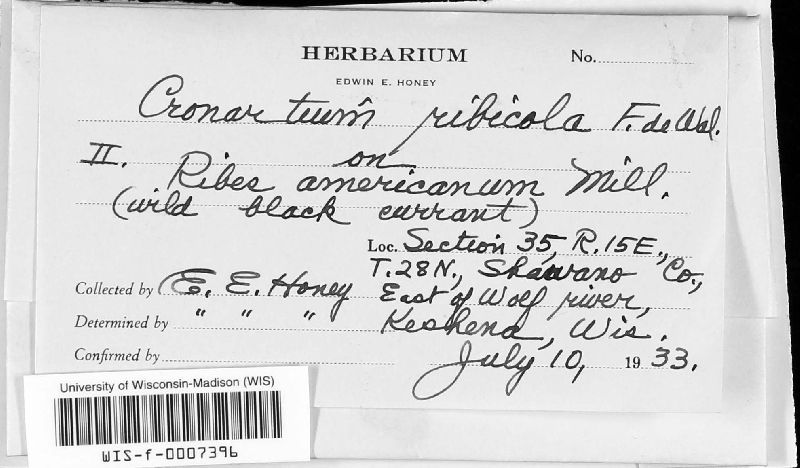 HERBARIUM No.
EDWIN E. HONEY
Cronartium ribicola F. de Wal.
II. on
Ribes americanum Mill.
(wild black currant)
Loc. Section 35, R. 15E.,
T. 28N., Shawano Co.,
Collected by E. E. Honey East of Wolf river,
Determined by " " " Keshena, Wis.
Confirmed by July 10, 1933.
University of Wisconsin-Madison (WIS)
WIS-f-0007396